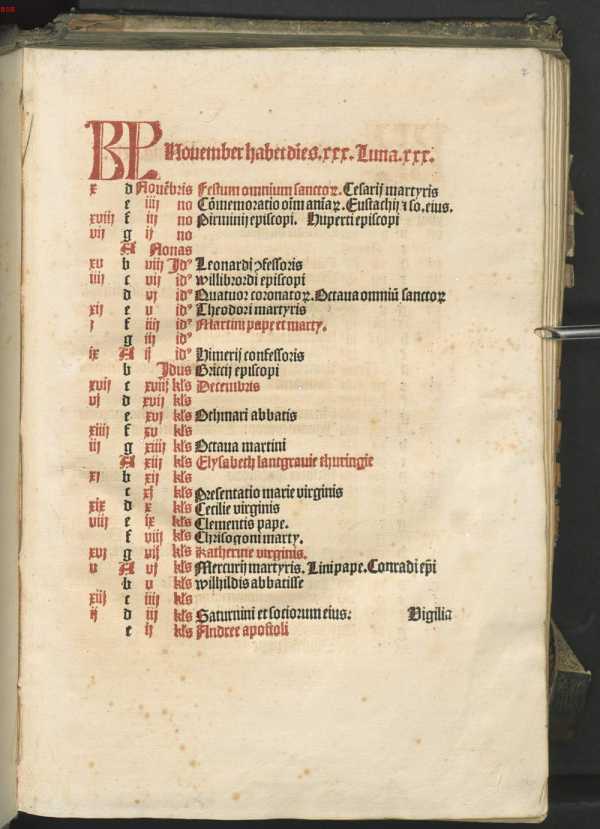 KL November habet dies. xxx. Luna. xxx.
x d Nouēbris Festum omnium sanctoꝝ. Cesarij martyris
e iiij no Cōmemoratio oīm aniaꝝ. Eustachij ⁊ so. eius.
xviij f iij no Pirminij episcopi. Huperti episcopi
vij g ij no
A Nonas
xv b viij Idꝰ Leonardi ꝯfessoris
iiij c vij idꝰ willibrordi episcopi
d vj idꝰ Quatuor coronatoꝝ. Octaua omniū sanctoꝝ
xij e v idꝰ Theodori martyris
j f iiij idꝰ Martini pape et marty.
g iij idꝰ
ix A ij idꝰ Himerij confessoris
b Idus Briccij episcopi
xvij c xviij kl's Decembris
vj d xvij kl's
e xvj kl's Othmari abbatis
xiiij f xv kl's
iij g xiiij kl's Octaua martini
A xiij kl's Elysabeth lantgrauie thuringie
xj b xij kl's
c xj kl's Presentatio marie virginis
xix d x kl's Cecilie virginis
viij e ix kl's Clementis pape.
f viij kl's Chrisogoni marty.
xvj g vij kl's Katherine virginis.
v A vj kl's Mercurij martyris. Lini pape. Conradi ep̄i
b v kl's wilhildis abbatisse
xiij c iiij kl's
ij d iij kl's Saturnini et sociorum eius: Vigilia
e ij kl's Andree apostoli